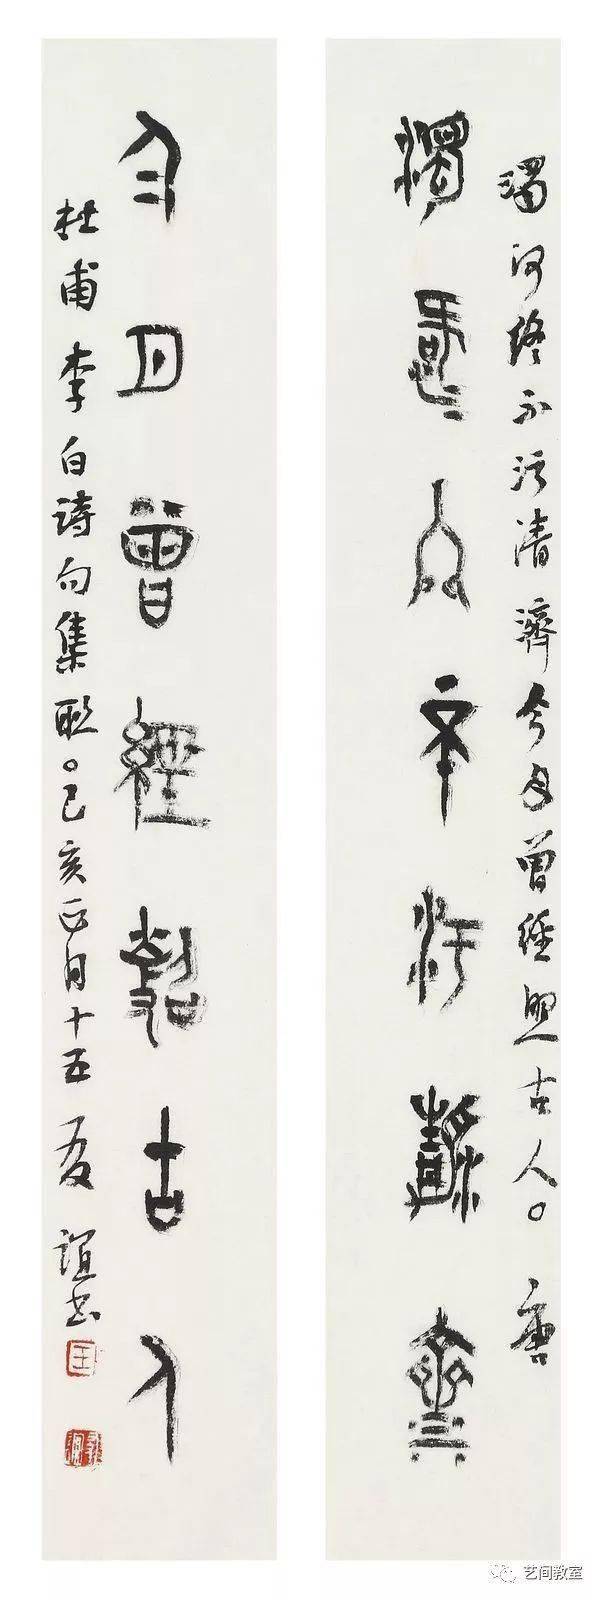 濁河終不污清濟
今月曾經照古人
濁河終不污清濟今月曾經照古人。唐
杜甫李白詩句集聯。己亥正月十五友誼書
艺间教室